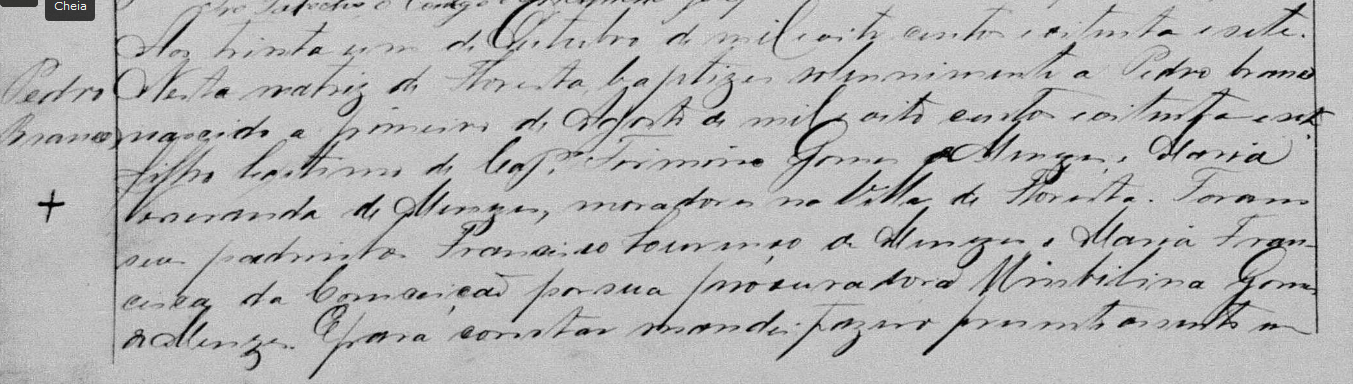 Cheia
Aos trinta um de Outubro de mil oito centos e oitenta e sete.
Pedro Nesta matriz de Floresta baptizei solennimente a Pedro branco
Branco nascido a primeiro de Agosto de mil e oito centos e oitenta e sete
filho legitimo de Capm. Firmino Gomes de Menezes e Maria
de Menezes, moradores na Villa de Floresta. Foram
seus padrinhos Francisco Lourenço de Menezes e Maria Fran-
cisca da Conceição por sua procuradora Gomes
de Menezes. E para constar mandei fazer o presente assento